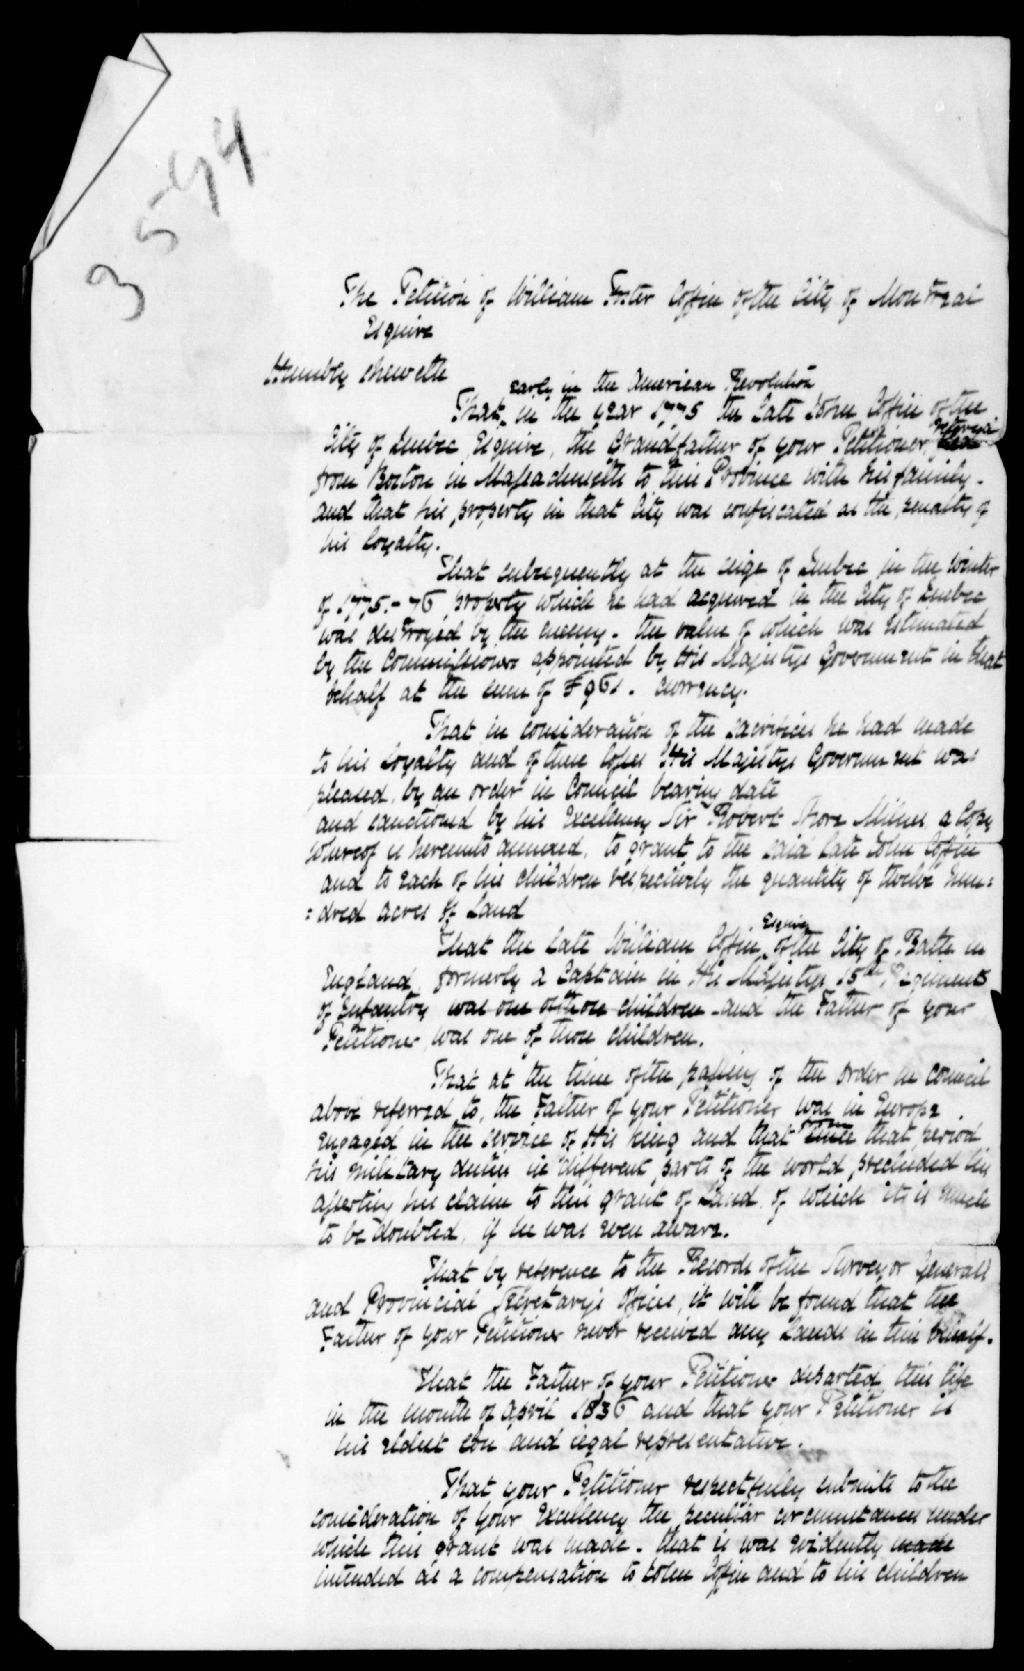 3594
The Petition of William Foster Coffin of the City of Montreal
Esquire
Humbly sheweth
early in the American Revolution
That, in the year 1775 the Late John Coffin of the
City of Quebec, Esquire, the Grandfather of your Petitioner,
from Boston in Massachusetts to this Province with his family -
and that his property in that City was confiscated as the penalty of
his loyalty.
That subsequently at the siege of Quebec in the winter
of 1775-76, property which he had acquired in the City of Quebec
was destroyed by the enemy - the value of which was estimated
by the Commissioners appointed by His Majestys Government in that
behalf at the sum of currency.
That in consideration of the sacrifices he had made
to his loyalty and of these losses His Majestys Government was
pleased, by an order in Council bearing date
and sanctioned by his Excellency Sir Robert Shore Milnes a Copy
whereof is hereunto annexed, to grant to the said Late John Coffin
and to each of his children respectively the quantity of twelve hun=
=dred acres of Land
Esquire
That the Late William Coffin, of the City of Bath in
England, formerly a Captain in His Majestys 15th Regiment
of Infantry was one of those children - and the Father of your
Petitioner, was one of those children.
That at the time of the passing of the order in council
above referred to, the Father of your Petitioner was in Europe
engaged in the service of His King and that since that period
his military duties in different parts of the world, precluded his
asserting his claim to this grant of Land, of which it is much
to be doubted, if he was even aware.
That by reference to the Records of the Surveyor Generals
and Provincial Secretarys offices, it will be found that the
Father of your Petitioner never received any Lands in this behalf.
That the Father of your Petitioner departed this life
in the month of April 1836 and that your Petitioner is
his eldest son and legal representative.
That your Petitioner respectfully submits to the
consideration of your Excellency the peculiar circumstances under
which this grant was made - that it was evidently made
intended as a compensation to John Coffin and to his children